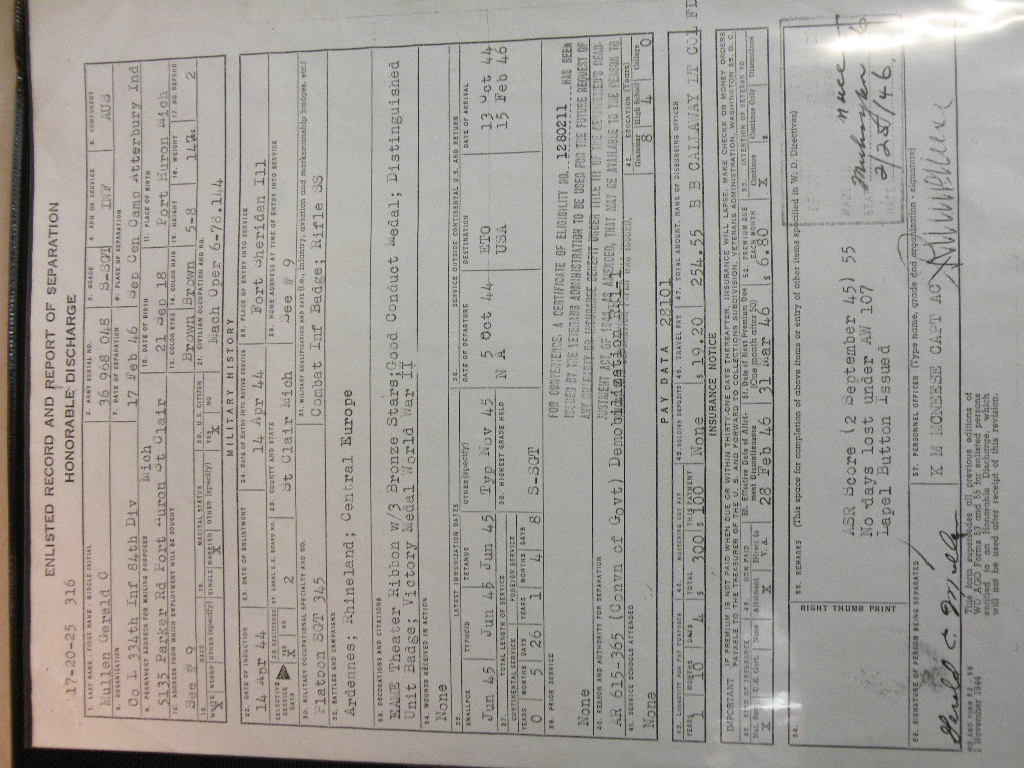 17-20-25 316
ENLISTED RECORD AND REPORT OF SEPARATION
HONORABLE DISCHARGE
1. LAST NAME - FIRST NAME - MIDDLE INITIAL
Mullen Gerald C
2. ARMY SERIAL NO.
36 968 048
3. GRADE
S-SGT
4. ARM OR SERVICE
INF
5. COMPONENT
AUS
6. ORGANIZATION
Co L 334th Inf 84th Div
7. DATE OF SEPARATION
17 Feb 46
8. PLACE OF SEPARATION
Sep Cen Camp Atterbury Ind
9. PERMANENT ADDRESS FOR MAILING PURPOSES
Mich
5135 Parker Rd Port Huron St Clair
10. DATE OF BIRTH
21 Sep 18
11. PLACE OF BIRTH
Port Huron Mich
12. ADDRESS FROM WHICH EMPLOYMENT WILL BE SOUGHT
See # 9
13. COLOR EYES
Brown
14. COLOR HAIR
Brown
15. HEIGHT
5-8
16. WEIGHT
17. NO. DEPEND
2
18. RACE
WHITE NEGRO OTHER (specify)
X
19. MARITAL STATUS
SINGLE MARRIED OTHER (specify)
X
20. U.S. CITIZEN
YES NO
X
21. CIVILIAN OCCUPATION AND NO.
Mach Oper 6-78.144
MILITARY HISTORY
22. DATE OF INDUCTION
14 Apr 44
23. DATE OF ENLISTMENT
24. DATE OF ENTRY INTO ACTIVE SERVICE
14 Apr 44
25. PLACE OF ENTRY INTO SERVICE
Fort Sheridan Ill
SELECTIVE SERVICE DATA
26. REGISTERED
YES NO
X
27. LOCAL S.S. BOARD NO.
2
28. COUNTY AND STATE
St Clair Mich
29. HOME ADDRESS AT TIME OF ENTRY INTO SERVICE
See # 9
30. MILITARY OCCUPATIONAL SPECIALTY AND NO.
Platoon SGT 345
31. MILITARY QUALIFICATION AND DATE (i.e., infantry, aviation and marksmanship badges, etc.)
Combat Inf Badge; Rifle SS
32. BATTLES AND CAMPAIGNS
Ardenes; Rhineland; Central Europe
33. DECORATIONS AND CITATIONS
EAME Theater Ribbon w/3 Bronze Stars; Good Conduct Medal; Distinguished
Unit Badge; Victory Medal World War II
34. WOUNDS RECEIVED IN ACTION
None
35. LATEST IMMUNIZATION DATES
SMALLPOX TYPHOID TETANUS OTHER (specify)
Jun 45 Jun 45 Jun 45 Typ Nov 45
36. SERVICE OUTSIDE CONTINENTAL U.S. AND RETURN
DATE OF DEPARTURE DESTINATION DATE OF ARRIVAL
5 Oct 44 ETO 13 Oct 44
N A USA 15 Feb 46
37. TOTAL LENGTH OF SERVICE
CONTINENTAL SERVICE FOREIGN SERVICE
YEARS MONTHS DAYS YEARS MONTHS DAYS
0 5 26 1 4 8
38. HIGHEST GRADE HELD
S-SGT
39. PRIOR SERVICE
None
FOR CONVENIENCE, A CERTIFICATE OF ELIGIBILITY NO. 1280211 HAS BEEN
ISSUED BY THE VETERANS ADMINISTRATION TO BE USED FOR THE FUTURE REQUEST OF
40. REASON AND AUTHORITY FOR SEPARATION
AR 615-365 (Convn of Govt) Demobilization RR1-1
41. SERVICE SCHOOLS ATTENDED
None
42. EDUCATION (Years)
Grammar High School College
8 4 0
PAY DATA 28101
43. LONGEVITY FOR PAY PURPOSES
YEARS MONTHS DAYS
1 10 4
44. MUSTERING OUT PAY
TOTAL THIS PAYMENT
$ 300 $ 100
45. SOLDIER DEPOSITS
None
46. TRAVEL PAY
$ 19.20
47. TOTAL AMOUNT, NAME OF DISBURSING OFFICER
254.55 B B CALLAWAY LT COL FD
INSURANCE NOTICE
IMPORTANT IF PREMIUM IS NOT PAID WHEN DUE OR WITHIN THIRTY-ONE DAYS THEREAFTER, INSURANCE WILL LAPSE. MAKE CHECKS OR MONEY ORDERS
PAYABLE TO THE TREASURER OF THE U. S. AND FORWARD TO COLLECTIONS SUBDIVISION, VETERANS ADMINISTRATION, WASHINGTON 25, D. C.
48. KIND OF INSURANCE
Nat. Serv. U.S. Govt. None
X
49. HOW PAID
Allotment Direct to V. A.
X
50. Effective Date of Allotment Discontinuance
28 Feb 46
51. Date of Next Premium Due (One month after 50)
31 Mar 46
52. PREMIUM DUE EACH MONTH
$ 6.80
53. INTENTION OF VETERAN TO
Continue Continue Only Discontinue
X $
54.
RIGHT THUMB PRINT
55. REMARKS (This space for completion of above items or entry of other items specified in W. D. Directives)
ASR Score (2 September 45) 55
No days lost under AW 107
Lapel Button Issued
2/25/46
56. SIGNATURE OF PERSON BEING SEPARATED
Gerald C. Mullen
57. PERSONNEL OFFICER (Type name, grade and organization - signature)
K M MCNEESE CAPT AC
WD AGO FORM 53 - 55
1 November 1944
This form supersedes all previous editions of
WD AGO Forms 53 and 55 for enlisted persons
entitled to an Honorable Discharge, which
will not be used after receipt of this revision.